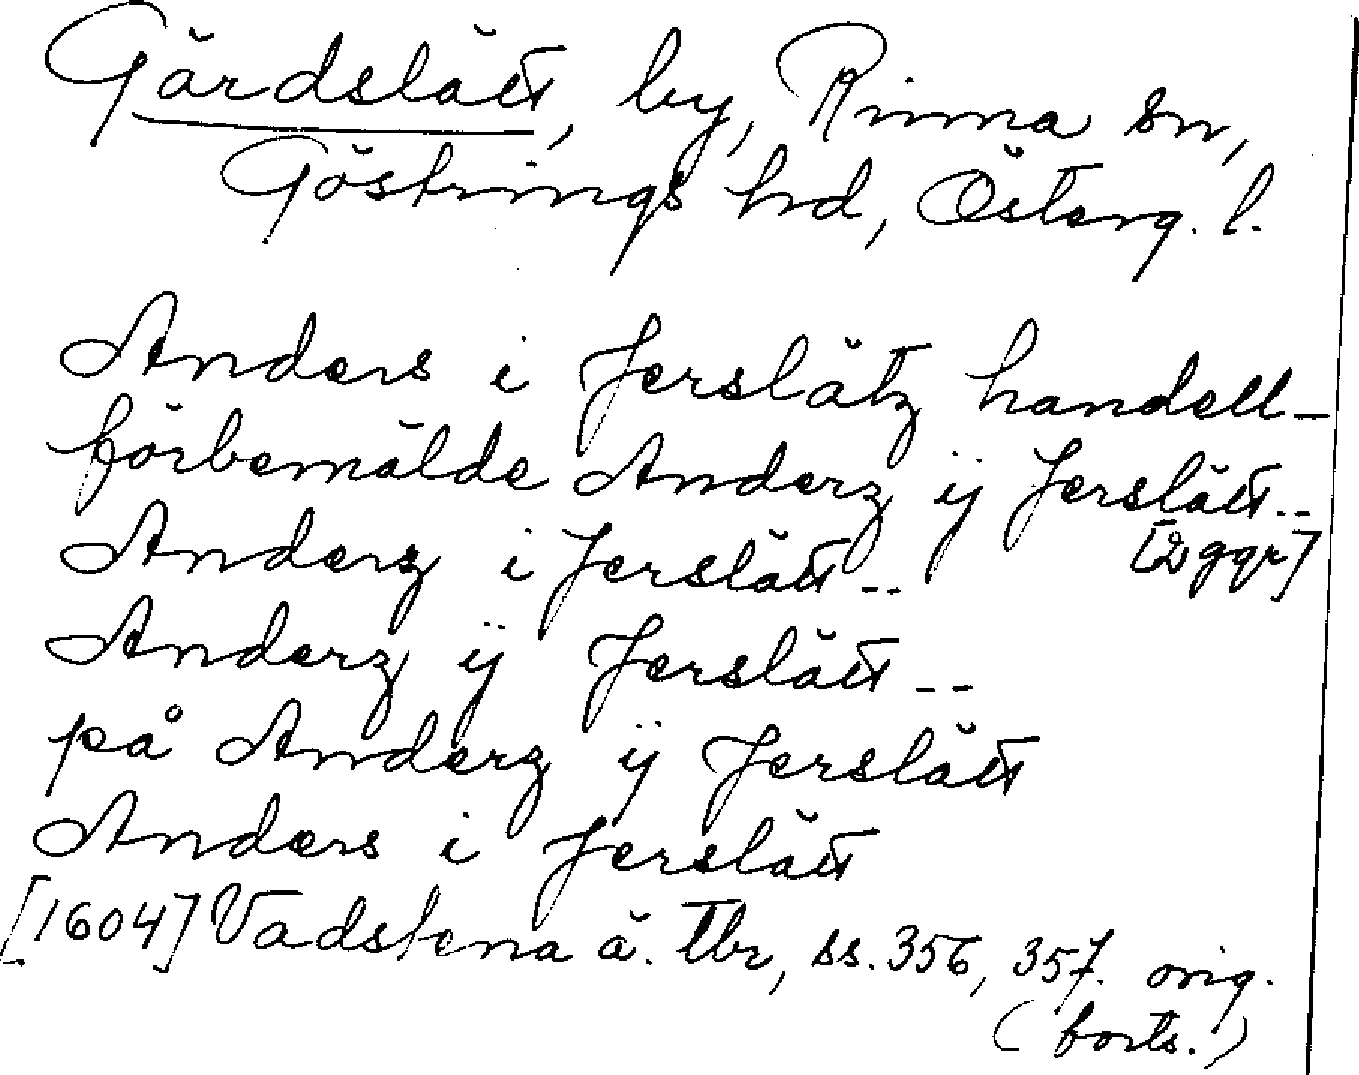 Gärdslätt, by, Rinna sn,
Göstrings hd, Österg. l.
Anders i Jerslätz handell-
förbemälde Anderz ij Jerslätt..
[2 ggr]
Anderz i Jerslätt--
Anderz ij Jerslätt--
på Anderz ij Jerslätt
Anders i Jerslätt
[1604] Vadstena ä. tbr, ss. 356, 357. orig.
(forts.)